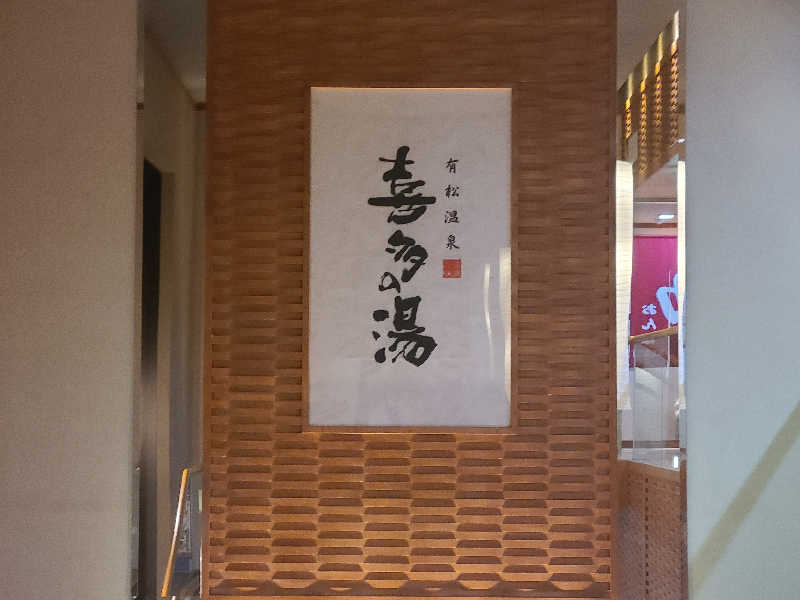 有松温泉
喜多の湯
おん